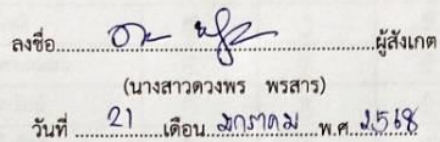 ลงชื่อ..............................................ผู้สังเกต
(นางสาวดวงพร พรสาร)
วันที่ ....21....เดือน..มกราคม..พ.ศ..2568